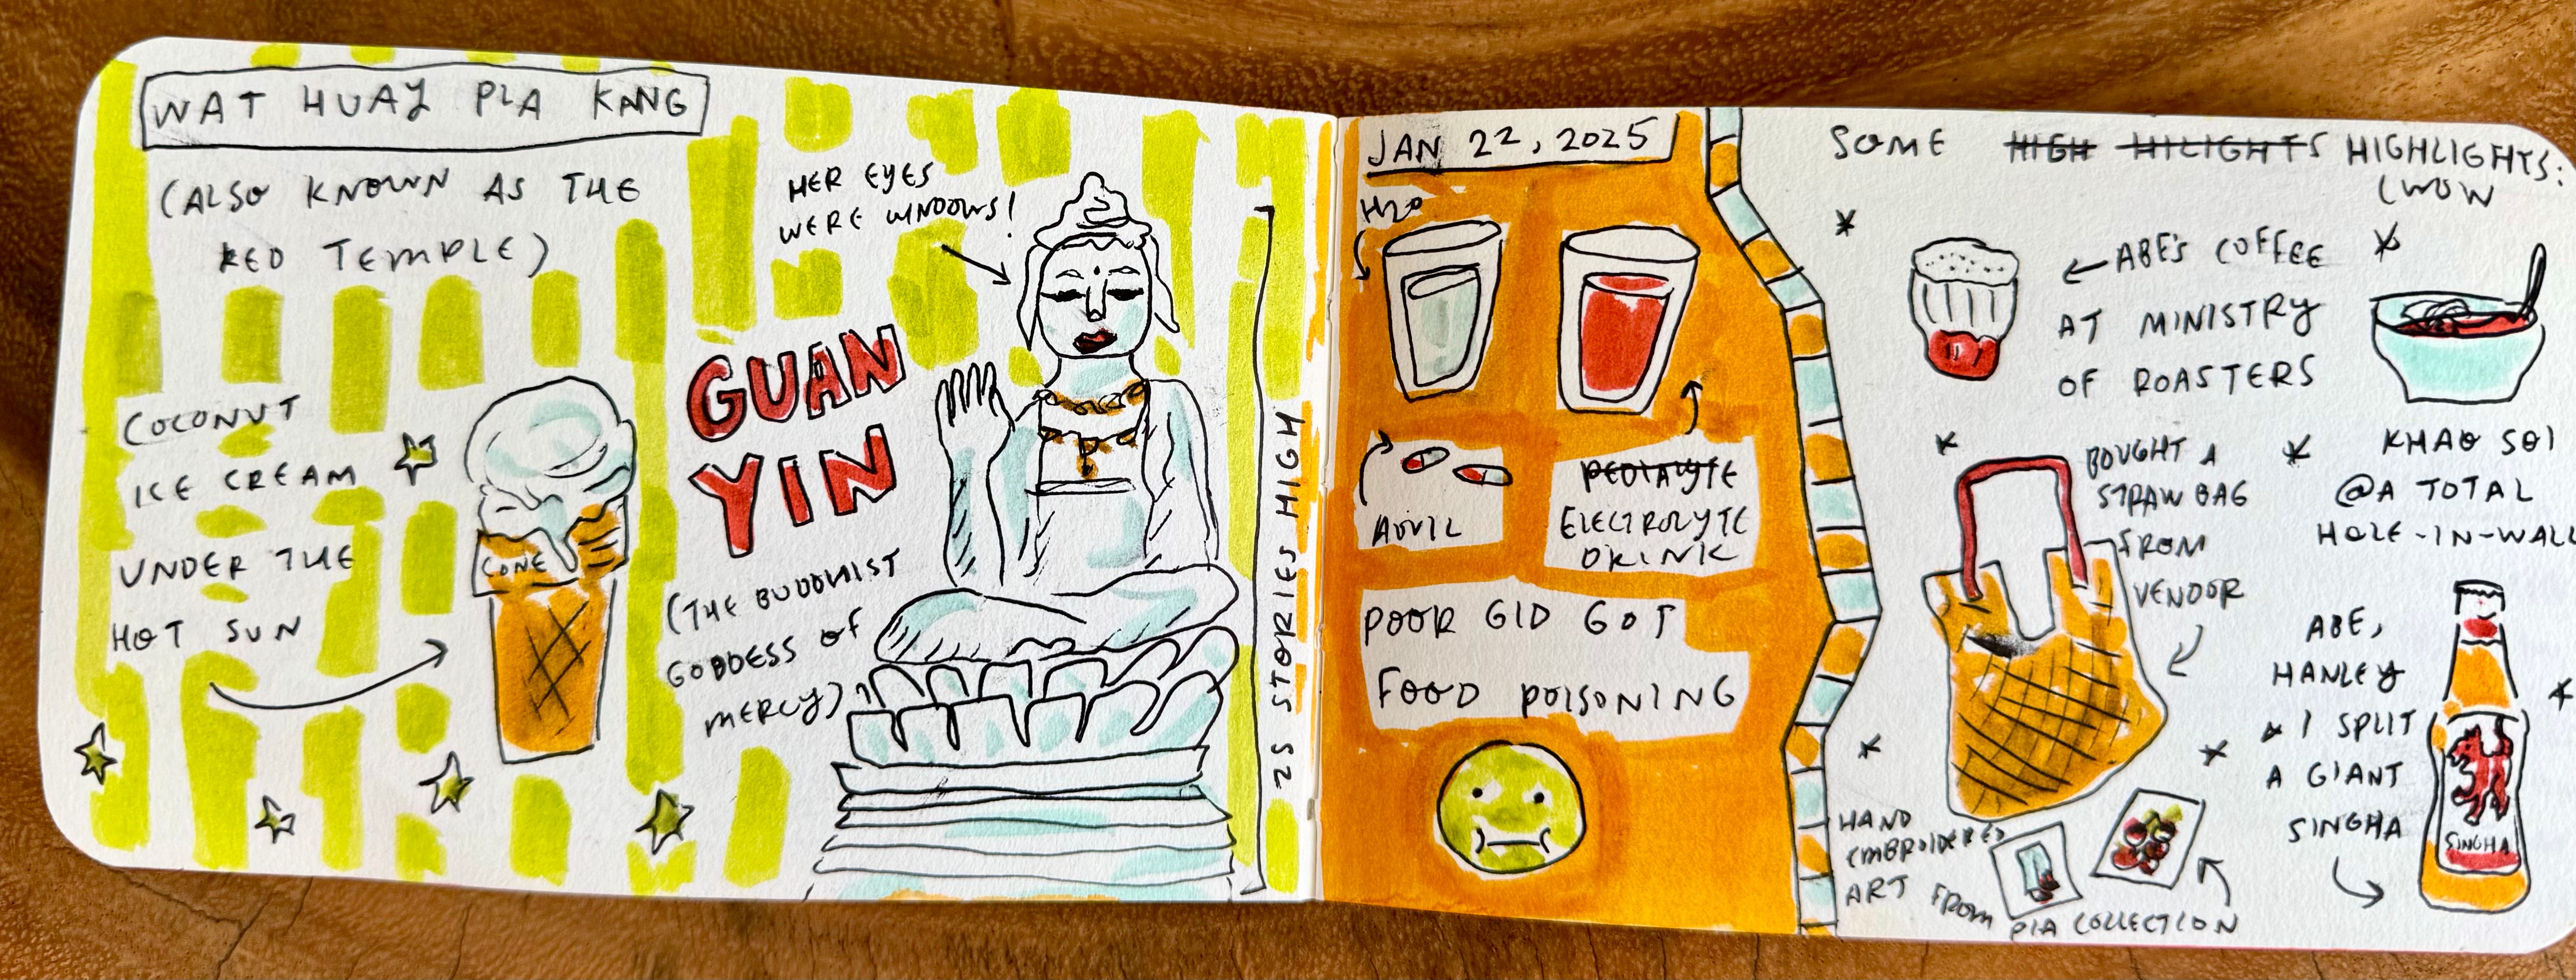 WAT HUAY PLA KANG
(ALSO KNOWN AS THE
RED TEMPLE)
COCONUT
ICE CREAM
UNDER THE
HOT SUN
CONE
HER EYES
WERE WINDOWS!
GUAN
YIN
(THE BUDDHIST
GODDESS OF
MERCY)
25 STORIES HIGH
JAN 22, 2025
H2O
ADVIL
PEDIALYTE
ELECTROLYTE
DRINK
POOR GID GOT
FOOD POISONING
SOME HIGH HILIGHTS HIGHLIGHTS:
(WOW
ABE'S COFFEE
AT MINISTRY
OF ROASTERS
KHAO SOI
@A TOTAL
HOLE-IN-WALL
BOUGHT A
STRAW BAG
FROM
VENDOR
ABE,
HANLEY
& I SPLIT
A GIANT
SINGHA
SINGHA
HAND
EMBROIDERED
ART FROM
PIA COLLECTION